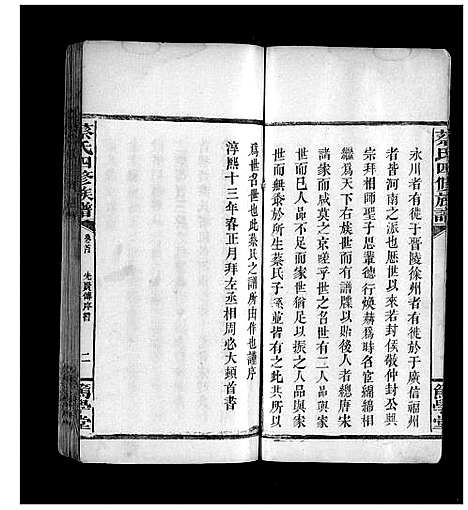 蔡氏四修族譜
篤學堂
永川者有徙於晋陵徐州者有徙於廣信福州
者皆河南之派也歷世以來若封侯敬仲封公興
宗拜相師聖子思輩德行煥赫爲時名宦綿綿相
繼爲天下右族世而有譜牒以續世系者總唐宋
諸家而咸莫之京嗟乎世之名世有二人品與家
世而已人品不足而家世有餘不足以振之人品與家
世而無忝於所生蔡氏子孫並皆有之宜其共所以
爲世名世也此蔡氏之譜所由作也謹序
淳熙十三年春正月拜左丞相周必大頓首書
蔡氏四修族譜
卷首
先賢傳序符
二
篤學堂